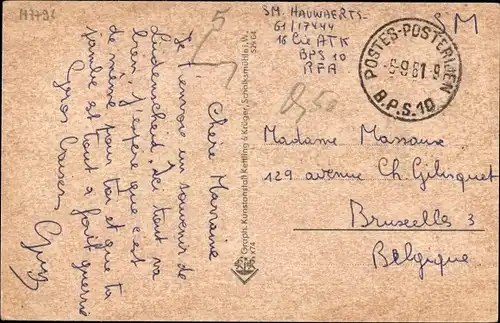 M7796
5
SM. HAUWAERTS
61/17444
16 Cie ATK
BPS 10
RFA
SM
POSTES-POSTERIJEN
-5-9 61-9
B.P.S.10
Chère Marraine
Je t'envoi un souvenir de
Lüdenscheid. Ici tout va
bien, j'espère que c'est
de même pour toi et que ta
jambe est tout à fait guérie
Gros baisers
Guy
Graph. Kunstanstalt Kettling & Krüger, Schalksmühle i. W.
Madame Massaux
129 avenue Ch. Gilisquet
Bruxelles 3
Belgique